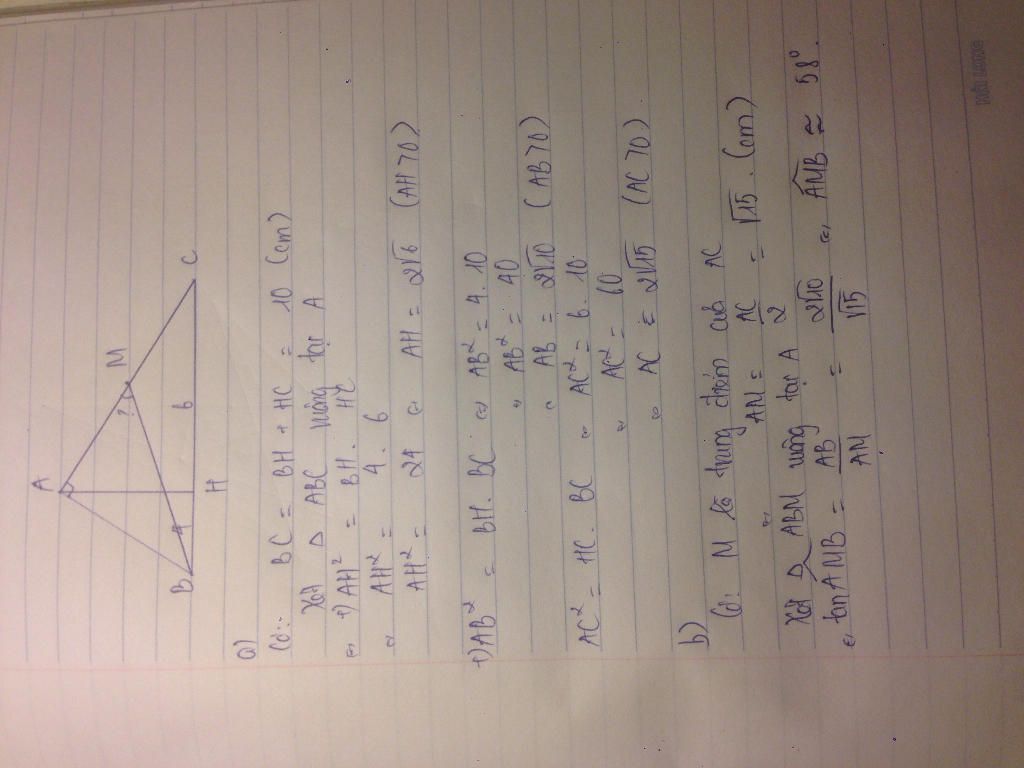 A
M
?
B
4
H
6
C
a)
Có: BC = BH + HC = 10 (cm)
Xét Δ ABC vuông tại A
⇒ +) AH² = BH . HC
⇔ AH² = 4 . 6
AH² = 24 ⇔ AH = 2√6 (AH > 0)
+) AB² = BH . BC ⇔ AB² = 4 . 10
⇔ AB² = 40
⇔ AB = 2√10 (AB > 0)
AC² = HC . BC ⇔ AC² = 6 . 10
⇔ AC² = 60
⇔ AC = 2√15 (AC > 0)
b)
Có: M là trung điểm của AC
⇒ AM = AC/2 = √15 (cm)
Xét Δ ABM vuông tại A
⇒ tan AMB = AB/AM = 2√10/√15 ⇔ AMB ≈ 58°.